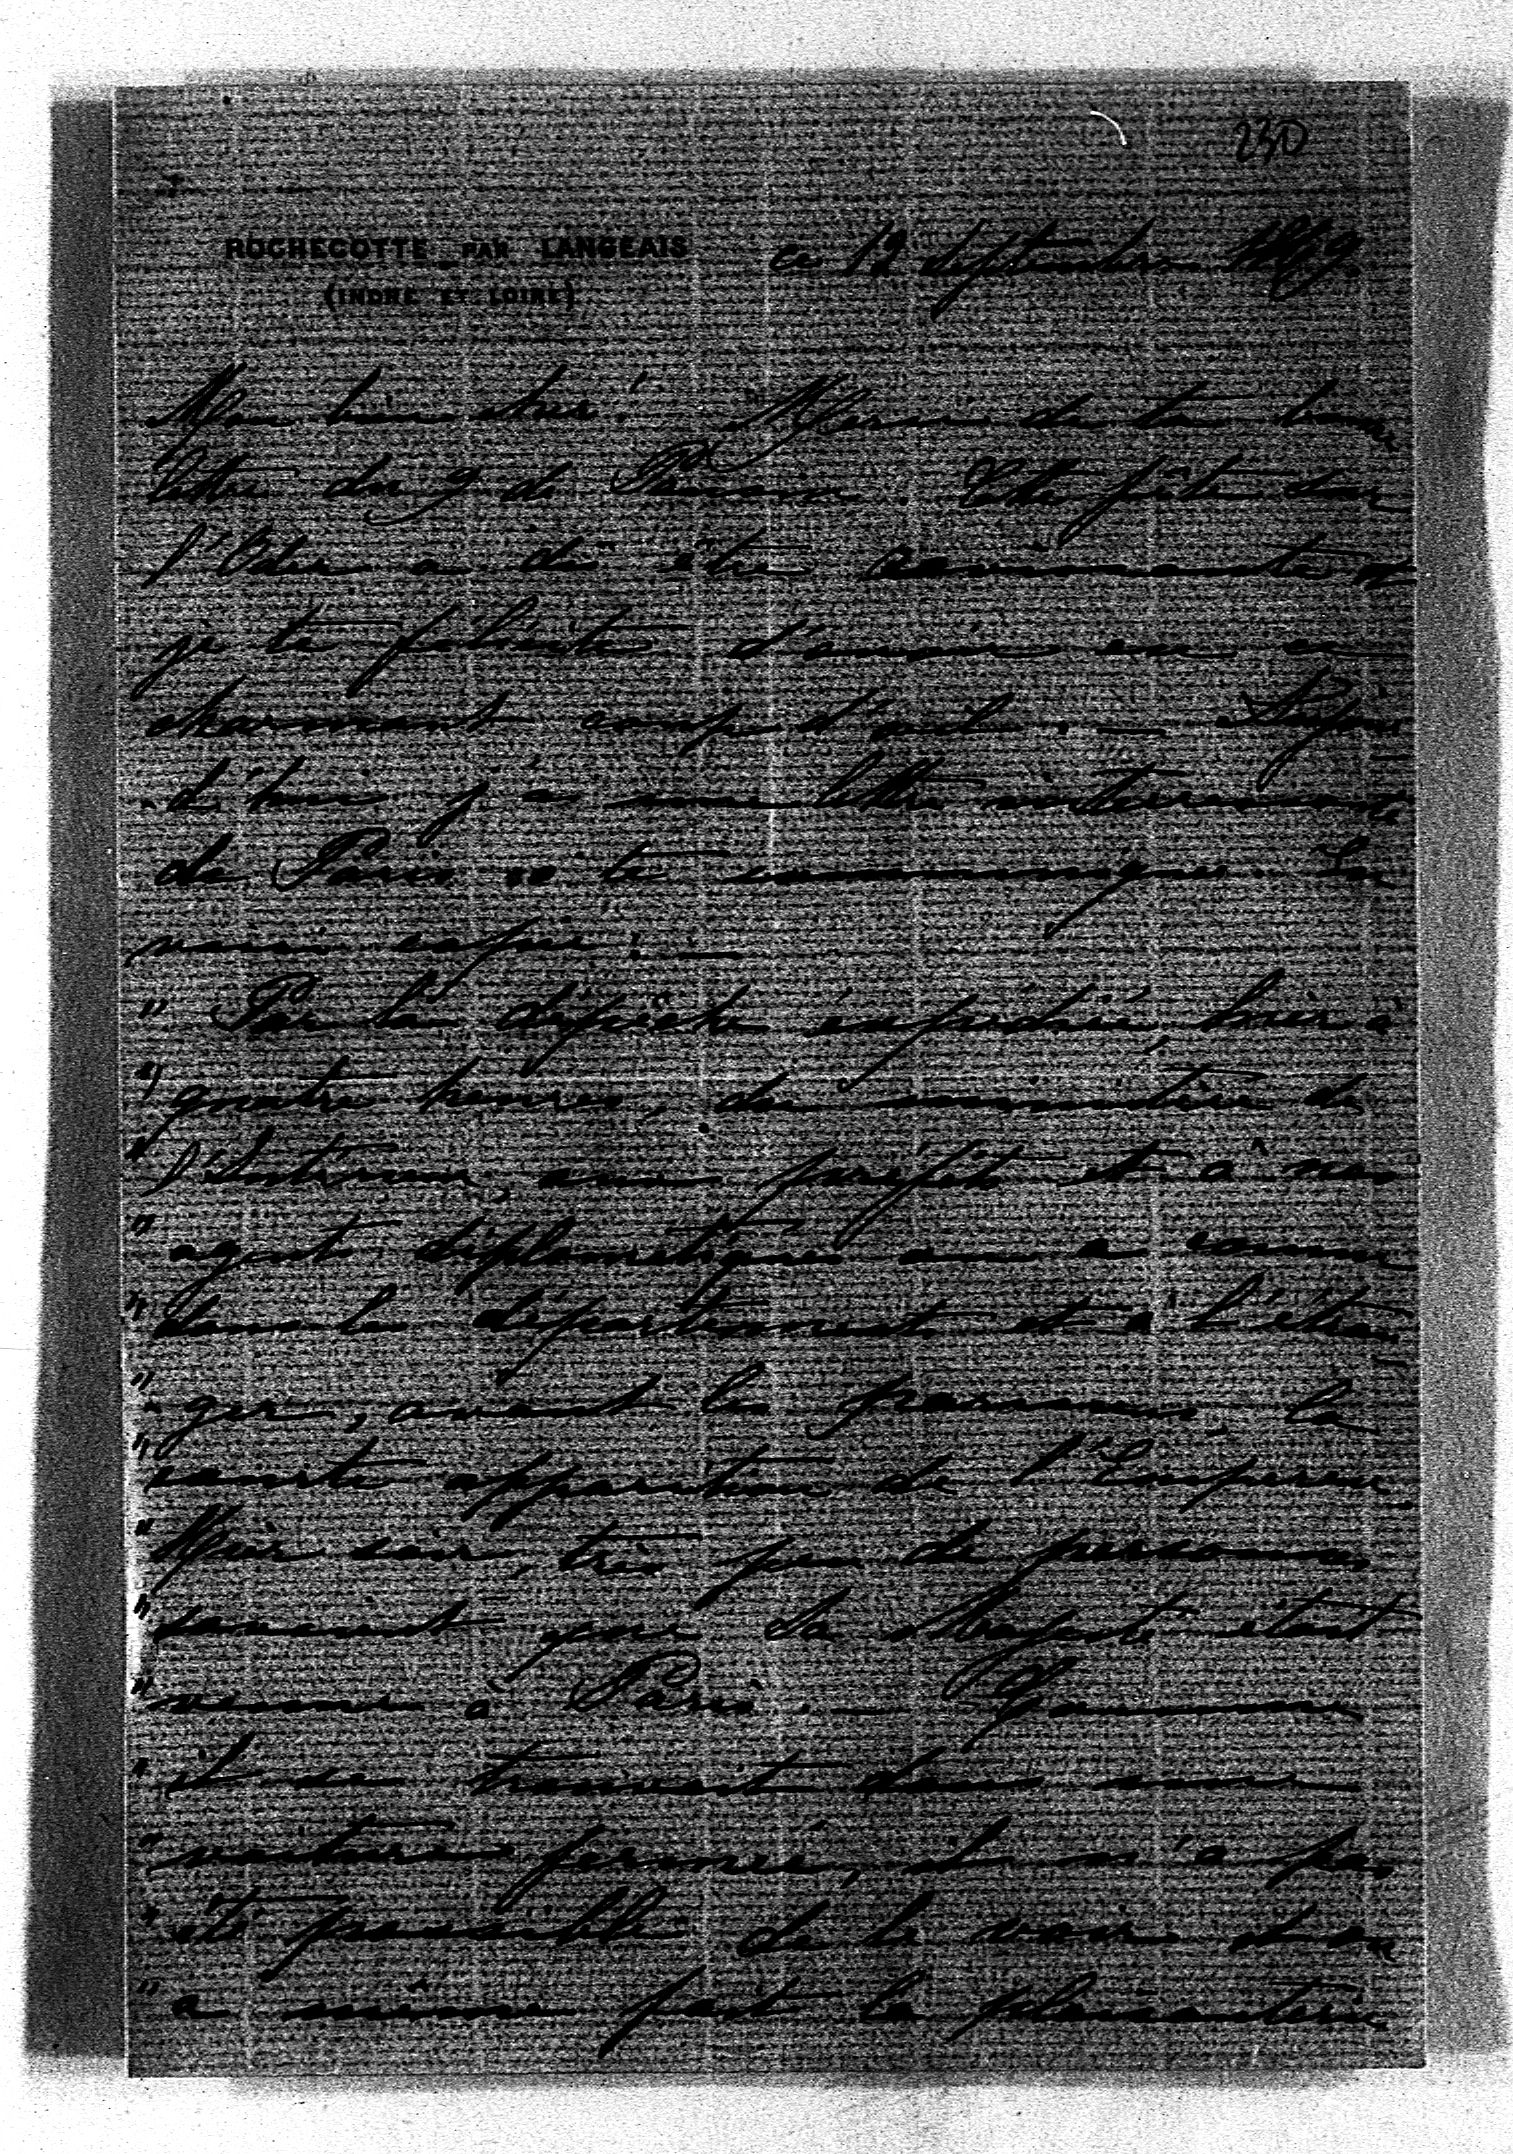 230
ROCHECOTTE PAR LANGEAIS
(INDRE ET LOIRE)
ce 12 Septembre 1869.
Mon bien cher! Merci de ta bonne
lettre du 9 de Cette fête sur
l'Oder a dû être ravissante et
je te félicite d'avoir eu ce
charmant coup d'œil. —
d'hui j'ai une lettre intéressante
de Paris à te communiquer. En
voici copie: —
" Par la dépêche expédiée hier à
" quatre heures, du ministère de
" l'Intérieur, aux préfets et à nos
" agents diplomatiques on a connu
" dans les départements et à l'étran-
" ger, avant les parisiens, la
" courte apparition de l'Empereur.
" Hier soir, très peu de personnes
" savaient que Sa Majesté était
" venue à Paris. — Comme
" il se trouvait dans une
" voiture fermée, il n'a pas
" été possible de le voir et on
" a même fait la plaisanterie